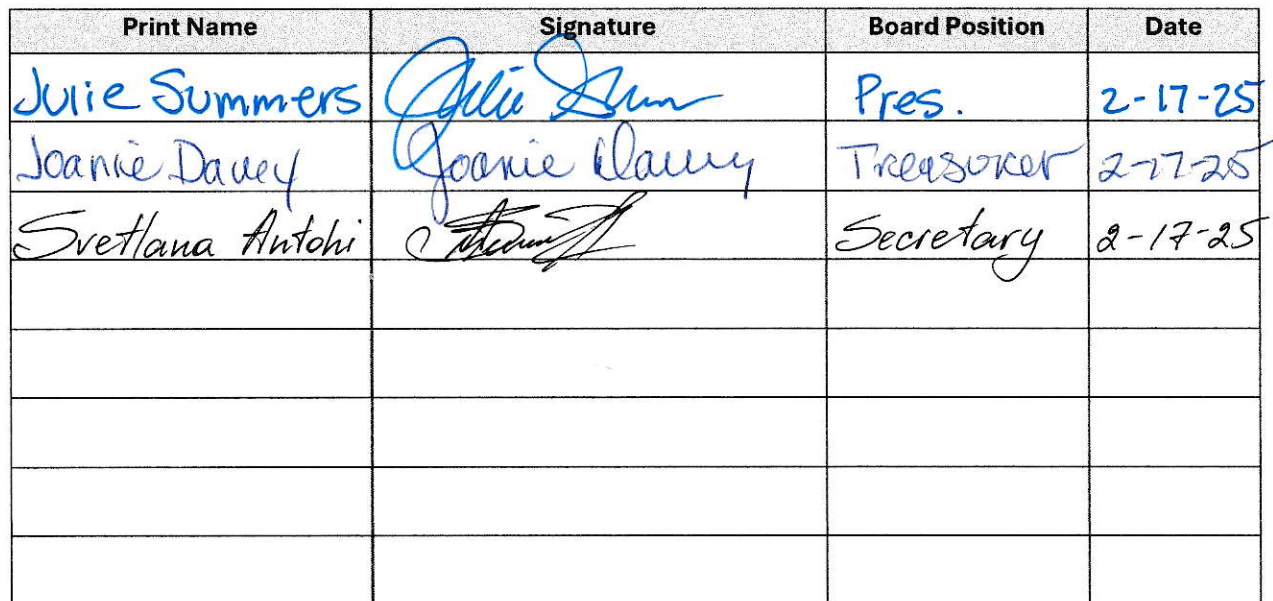 Print Name Signature Board Position Date
Julie Summers Julie Summ Pres. 2-17-25
Joanie Davey Joanie Davey Treasurer 2-17-25
Svetlana Antohi Secretary 2-17-25